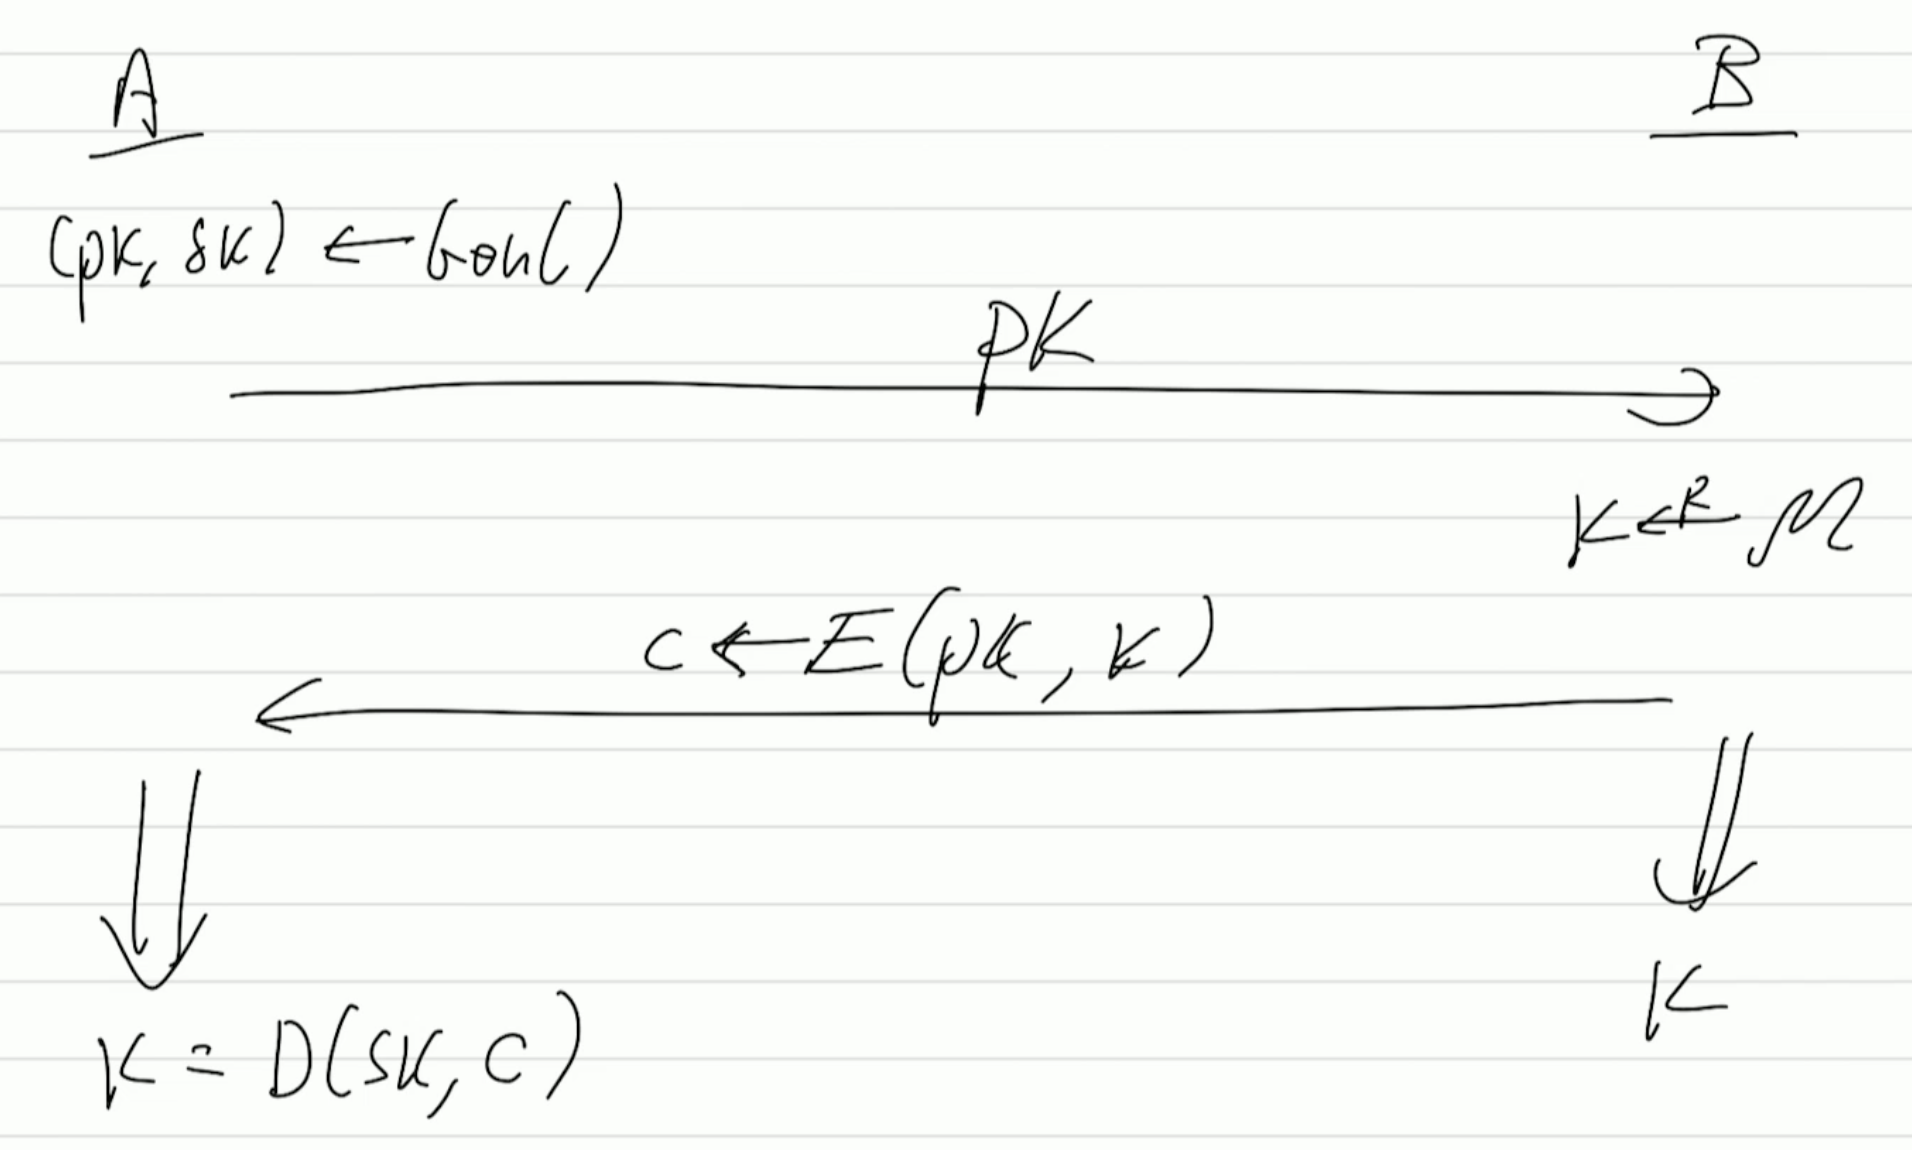 A
B
(pk, sk) ← Gen()
pk
K ←R M
c ← E(pk, k)
K
K = D(sk, c)